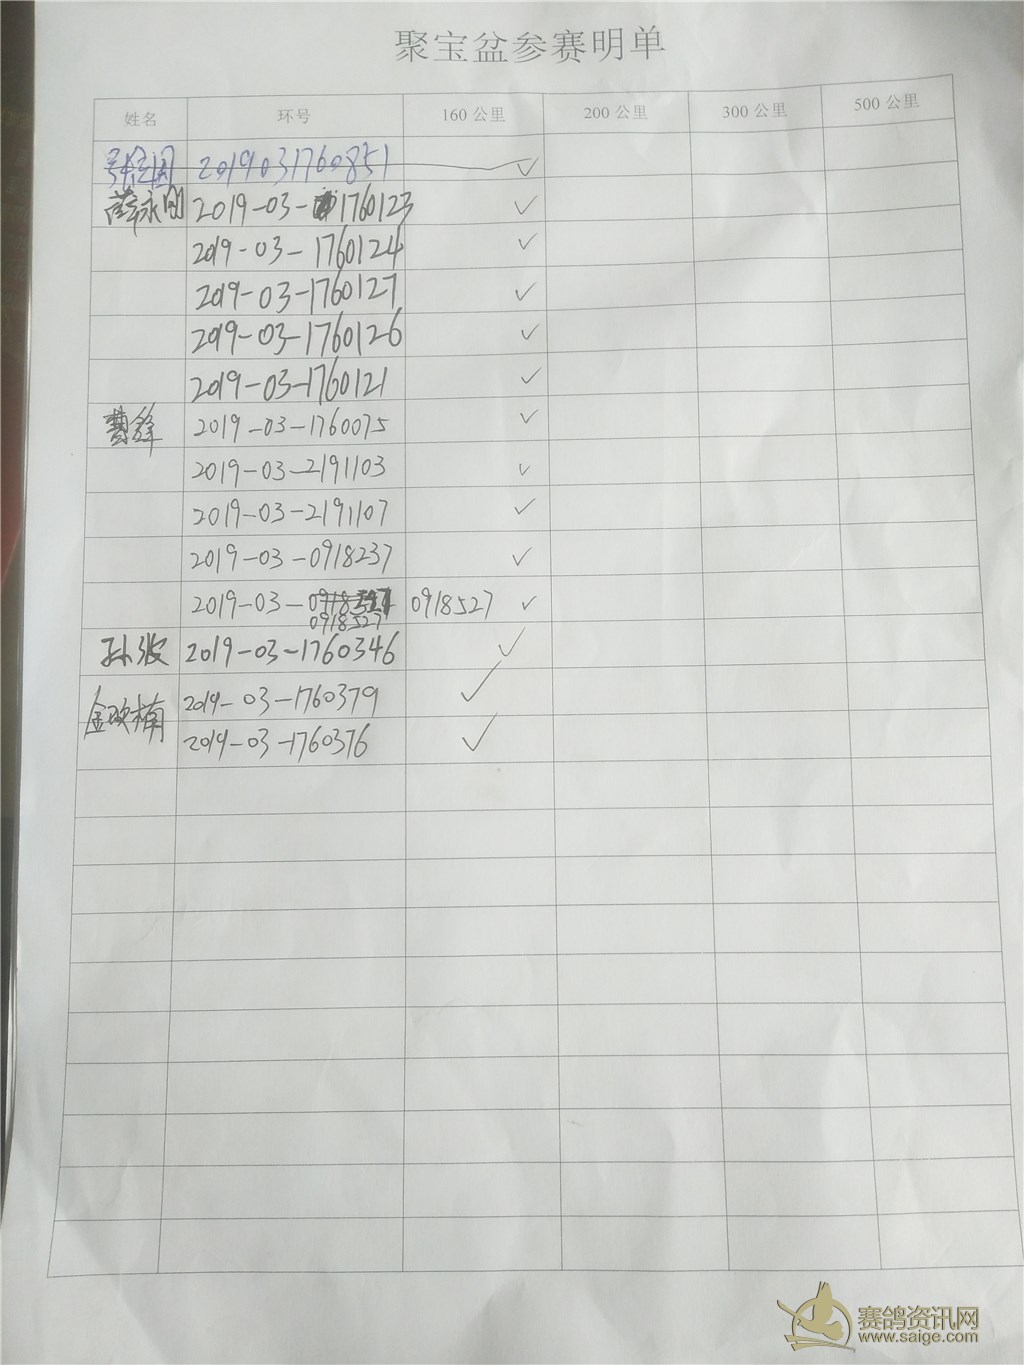 聚宝盆参赛明单
姓名 环号 160公里 200公里 300公里 500公里
2019031760851 ✓
薛永刚 2019-03-1760123 ✓
2019-03-1760124 ✓
2019-03-1760127 ✓
2019-03-1760126 ✓
2019-03-1760121 ✓
曹锋 2019-03-1760075 ✓
2019-03-2191103 ✓
2019-03-2191107 ✓
2019-03-0918237 ✓
2019-03- 0918527 ✓
0918527
孙波 2019-03-1760346 ✓
2019-03-1760379 ✓
2019-03-1760376 ✓
赛鸽资讯网
www.saige.com